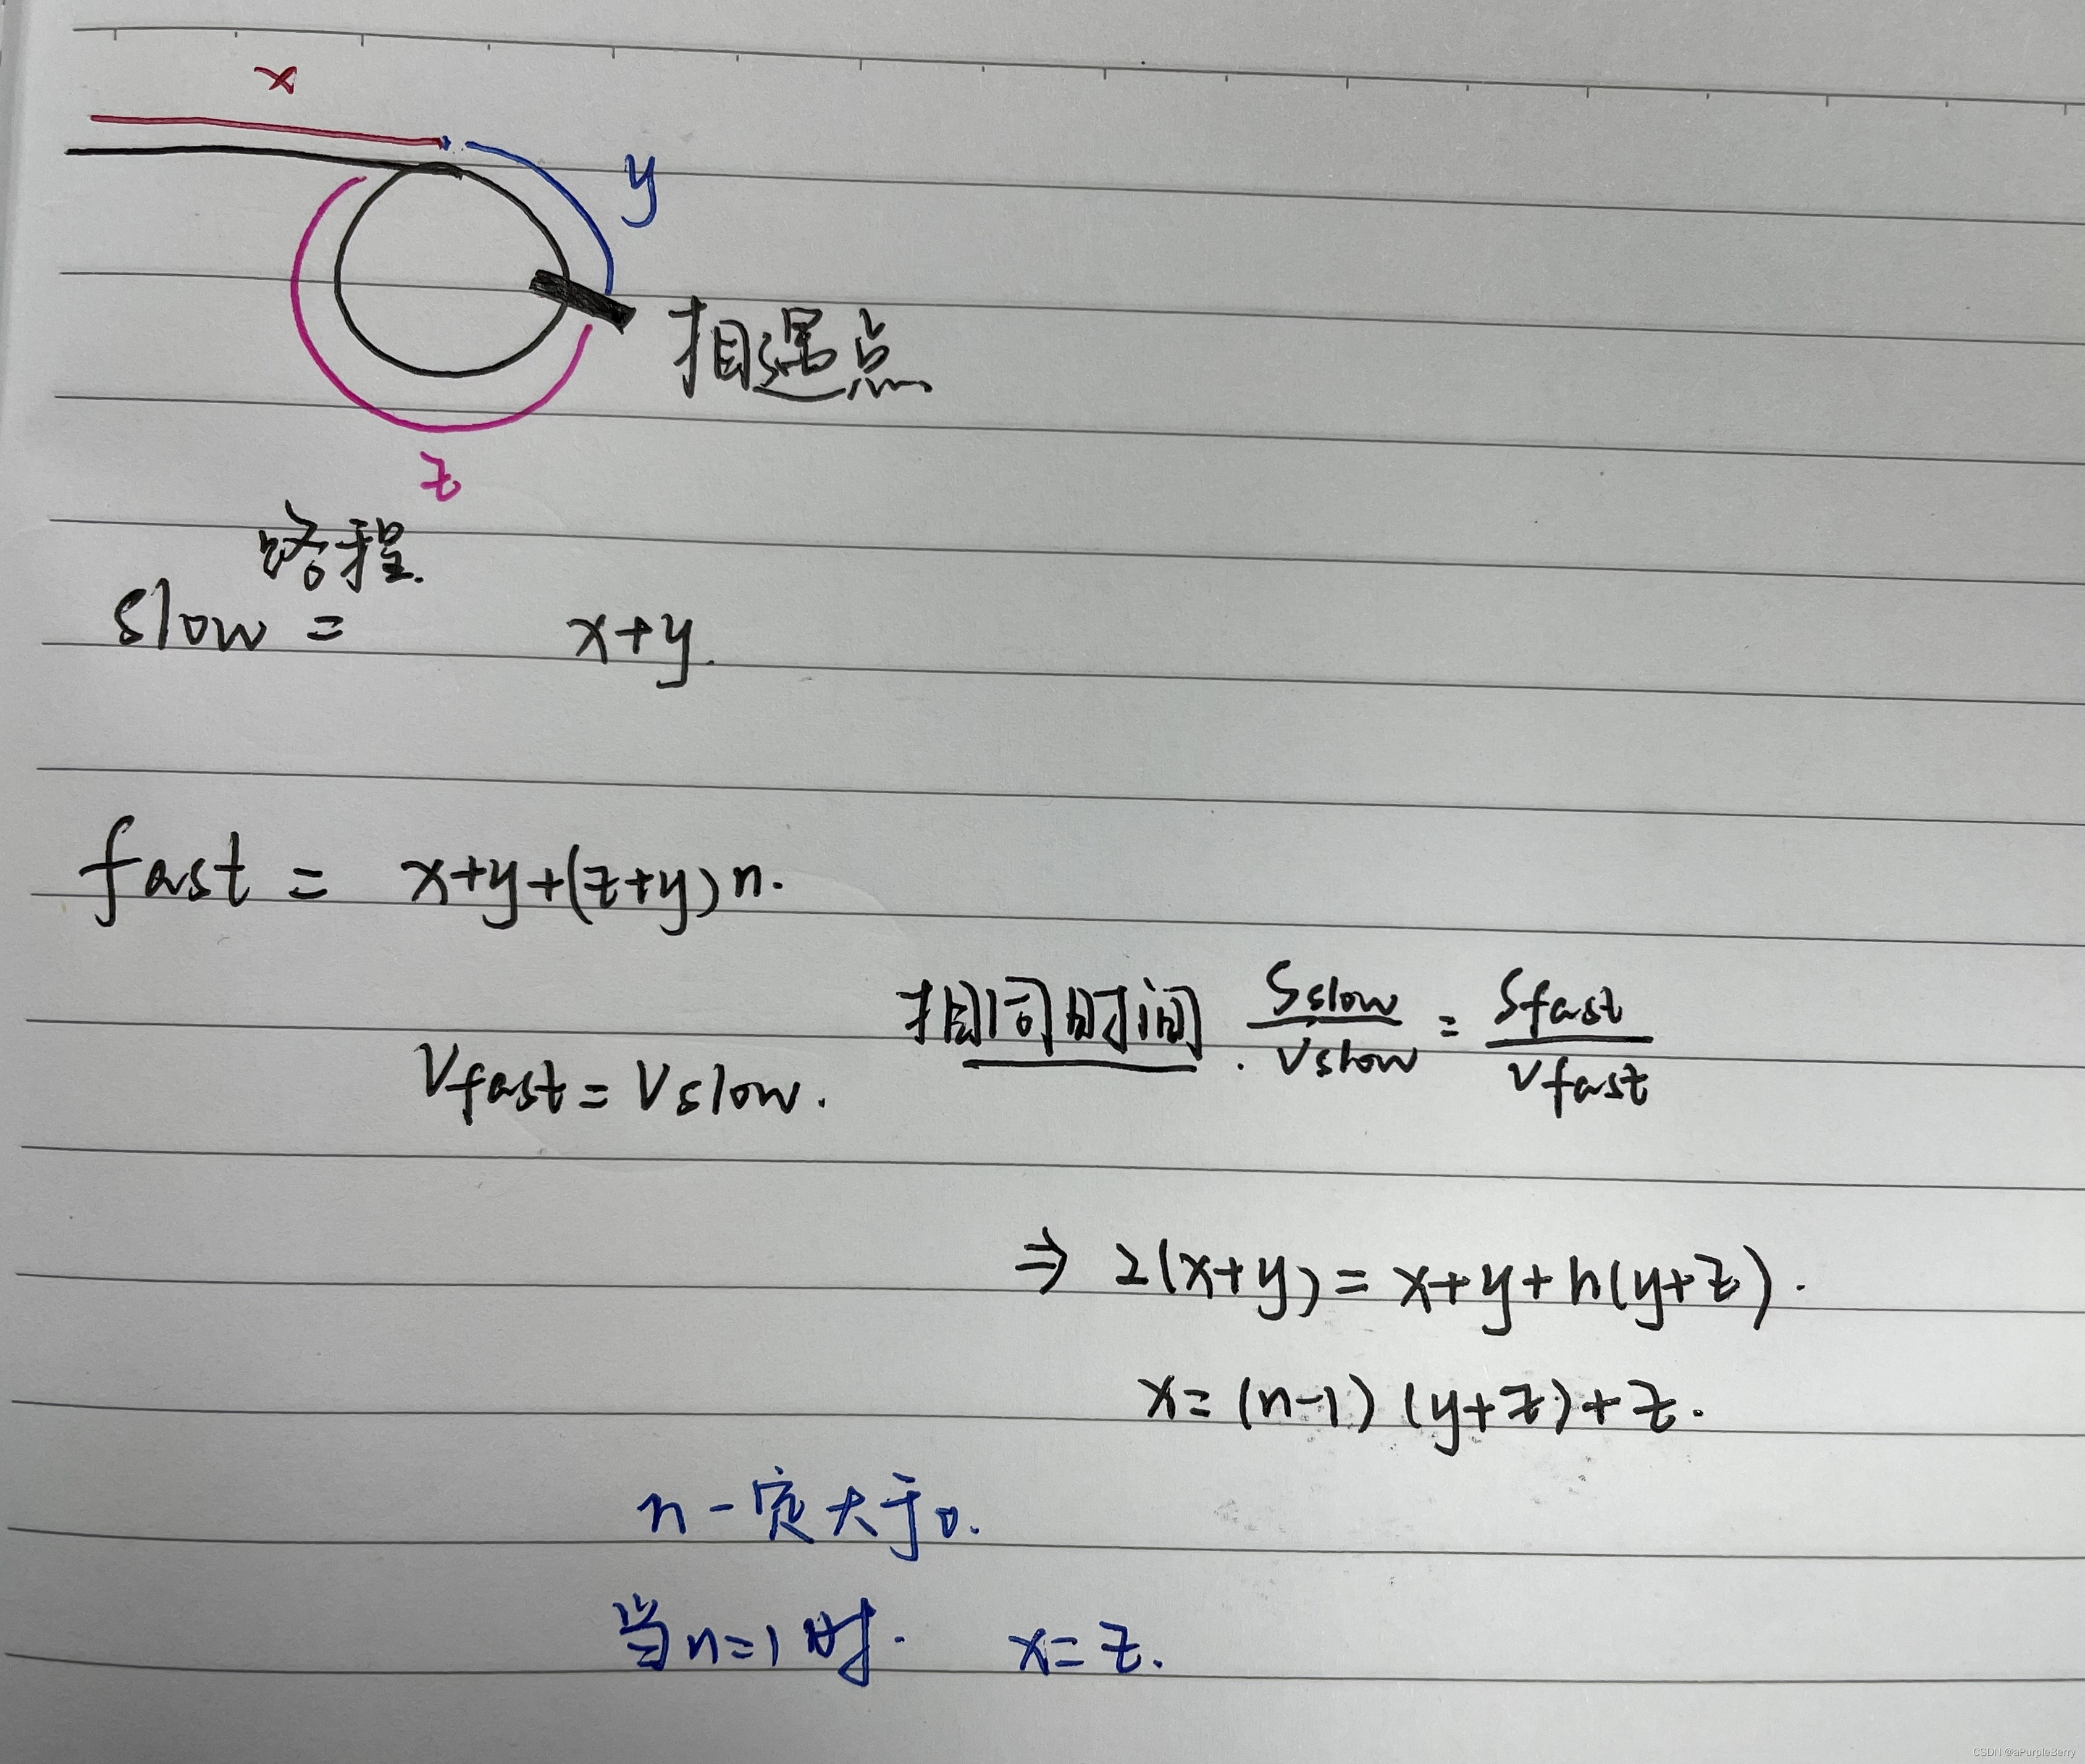 x
y
相遇点
z
路程.
slow = x+y.
fast = x+y+(z+y)n.
相同时间. Sslow/Vslow = Sfast/Vfast
Vfast = Vslow.
⇒ 2(x+y) = x+y+n(y+z).
x = (n-1)(y+z)+z.
n一定大于0.
当n=1时. x=z.
CSDN @aPurpleBerry